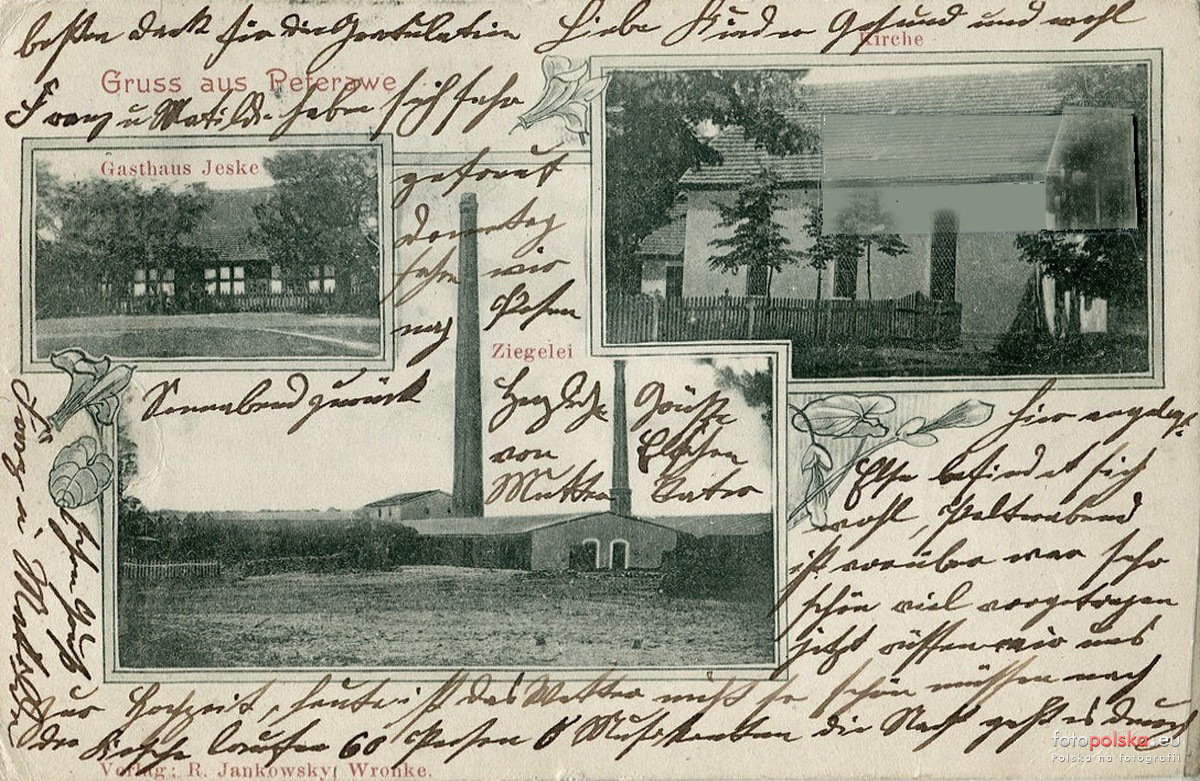 besten dank für die Gratulation
Liebe Kinder Gesund und wohl
Kirche
Gruss aus Peterawe
Franz u Matilde haben sich sehr
Gasthaus Jeske
gefreut
Donnstag
fahren wir
nach Posen
Ziegelei
Sonnabend zurück
Herzliche Grüsse
von
Mutter Vater
hier angelegt.
Else befindet sich
wohl, Polterabend
ist vorüber war sehr
schön viel vorgetragen
jetzt rüssen wir uns
zur Hochzeit, heute ist das Wetter nicht so schön müssen nach
der Kirche laufen 60 Person 6 Musikanten die Nacht geht es durch
schön Gruß
Franz u Matilde
Verlag: R. Jankowsky, Wronke.
fotopolska.eu
Polska na fotografii